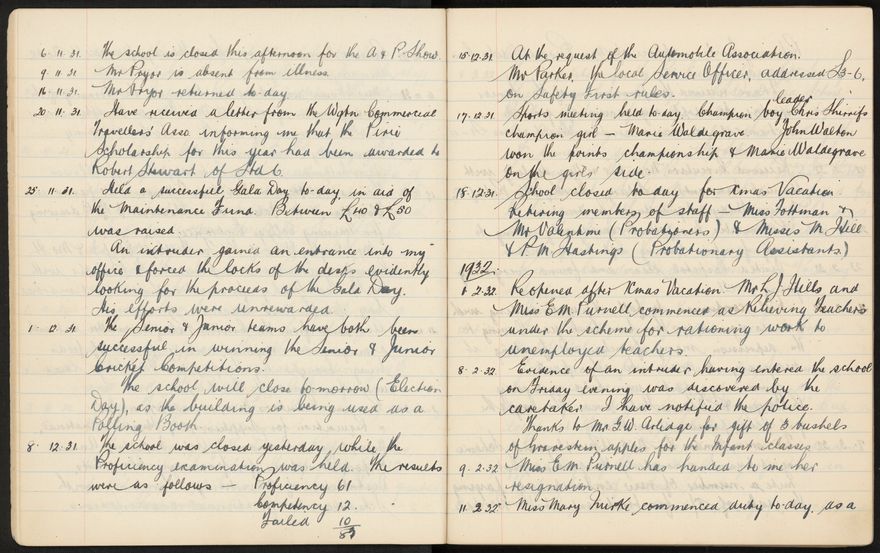 6. 11. 31. The school is closed this afternoon for the A & P. Show.
9. 11. 31 Mr Pryor is absent from illness.
16. 11. 31. Mr Pryor returned to-day
20. 11. 31. Have received a letter from the Wgtn Commercial
Travellers' Asso informing me that the Pirie
Scholarship for this year had been awarded to
Robert Stewart of Std 6.
25. 11. 31. Held a successful Gala Day to-day, in aid of
the Maintenance Fund. Between £40 & £50
was raised.
An intruder gained an entrance into my
office & forced the locks of the desks evidently
looking for the proceeds of the Gala Day.
His efforts were unrewarded.
1. 12. 31 The Senior & Junior teams have both been
successful in winning the Senior & Junior
Cricket Competitions.
The school will close to-morrow (Election
Day), as the building is being used as a
Polling Booth
8. 12. 31 The school was closed yesterday while the
Proficiency examination was held. The results
were as follows — Proficiency 61
Competency 12.
Failed 10
83
15.12.31 At the request of the Automobile Association.
Mr Parker, the local Service Officer, addressed S3-6,
on Safety First rules.
17.12.31 Sports meeting held to-day. Champion boy leader Chris Sherriffs
champion girl — Marie Waldegrave John Walton
won the points championship & Marie Waldegrave
on the girls' side.
18.12.31. School closed to day for Xmas Vacation.
Retiring members of staff — Miss &
Mr Valentine (Probationers) & Misses M. Hill
& P. M Hastings (Probationary Assistants.)
1932.
1. 2.32. Reopened after Xmas Vacation. Mr L J Hills and
Miss E M. Purnell commenced as Relieving Teachers
under the scheme for rationing work to
unemployed teachers.
8.2.32. Evidence of an intruder having entered the school
on Friday evening was discovered by the
caretaker. I have notified the police.
Thanks to Mr G.W. Arlidge for gift of 3 bushels
of Gravenstein apples for the Infant classes
9.2.32 Miss E M. Purnell has handed to me her
resignation.
11 2.32 Miss Mary commenced duty to-day, as a